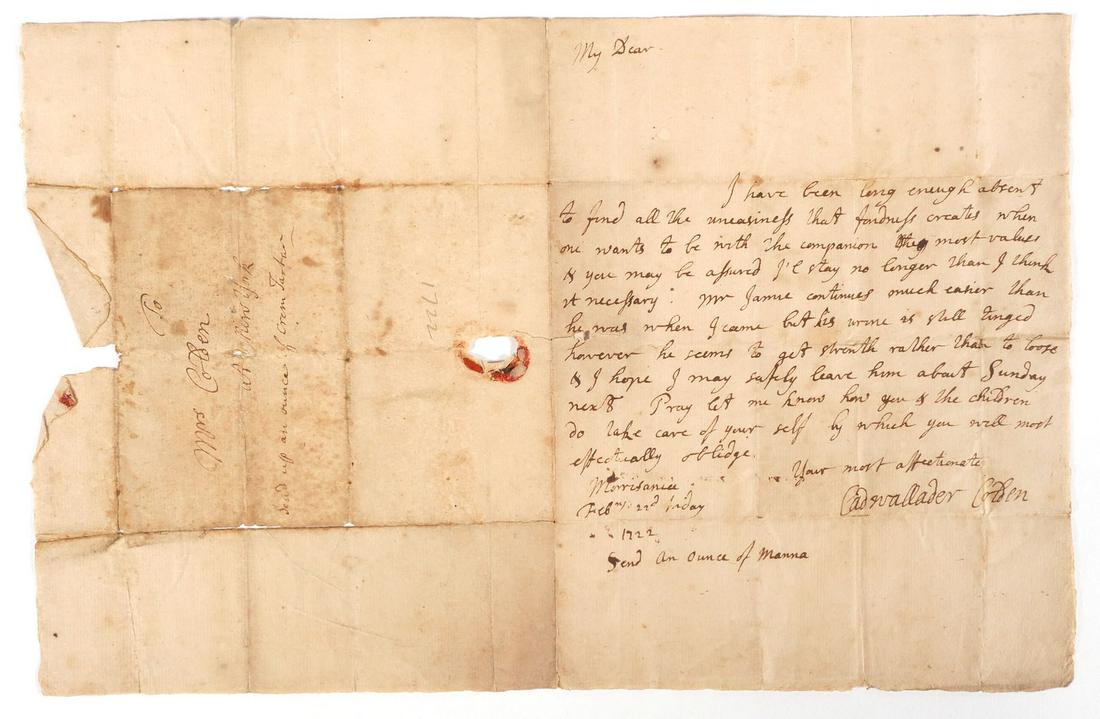 To
Mrs Colden
at New York
Send up an ounce of Crem Tartar
1722
My Dear
I have been long enough absent
to find all the uneasiness that fondness creates when
one wants to be with the companion they most values
& you may be assured I'l stay no longer than I think
it necessary: Mr Jamie continues much easier than
he was when I came but his urine is still tinged
however he seems to get strenth rather than to loose
& I hope I may safely leave him about Sunday
next Pray let me know how you & the children
do take care of your self by which you will most
effectually oblidge
Your most affectionate
Cadwallader Colden
Morrisania
Febry: 22d friday
1722
Send an ounce of Manna